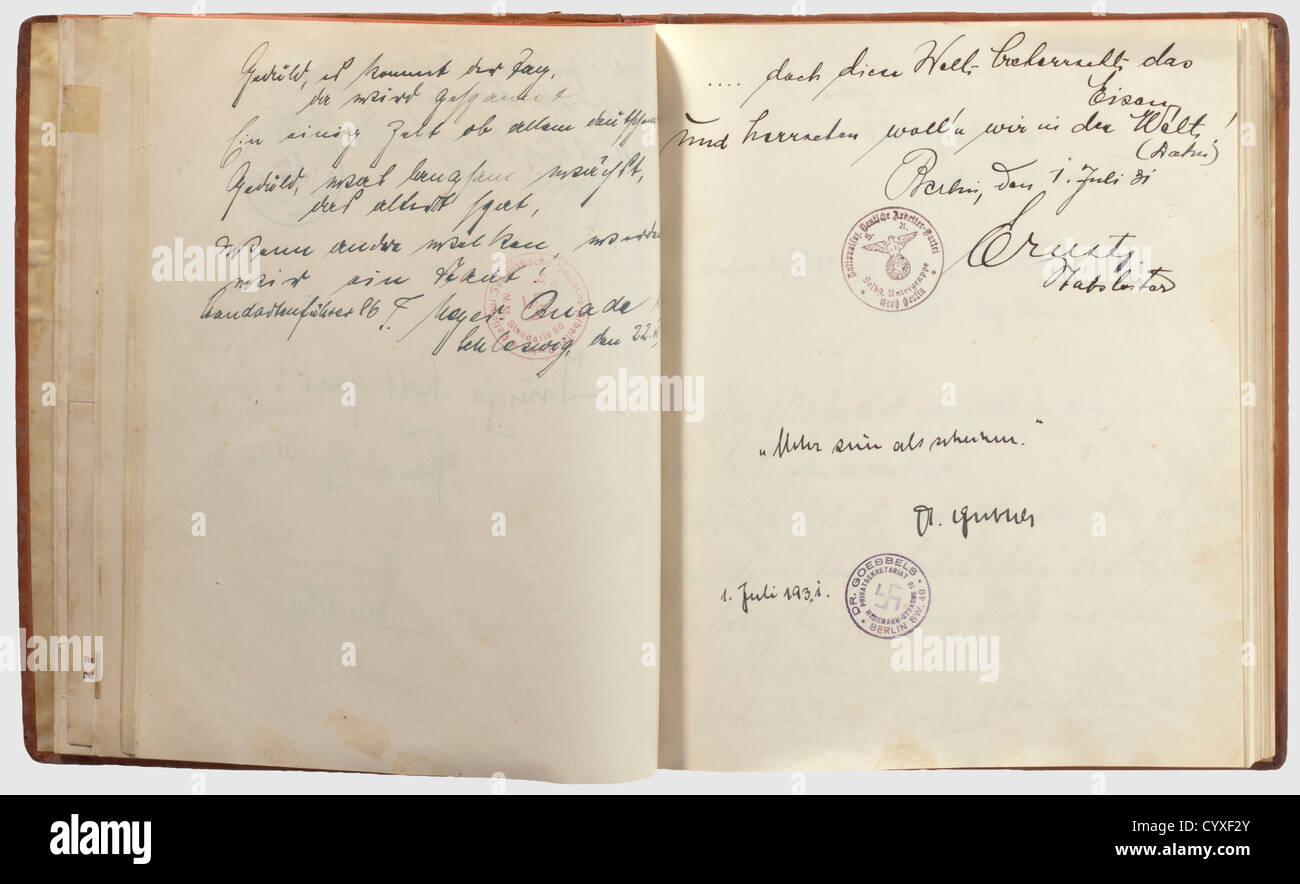 Geduld, es kommt der Tag,
da wird gespannt
Ein einig Zelt ob allem deutschen
Geduld, wer langsam wächst,
das altert spät,
Wenn andre welken, werden
wir ein Staat!
Standartenführer 86 F. Meyer-Quade
Schleswig, den 22.
Standarte 86
.... doch diese Welt beherrscht das
Eisen,
und herrschen woll'n wir in der Welt!
(Dahn)
Berlin, den 1. Juli 31
Ernst,
Stabsleiter
Nationalsoz. Deutsche Arbeiter-Partei
S. A.
Selbst. Untergruppe
Groß Berlin
„Mehr sein als scheinen."
Dr. Goebbels
1. Juli 1931.
DR. GOEBBELS
PRIVATSEKRETARIAT
HEDEMANN-STRASSE 10
BERLIN SW. 48
alamy
Image ID: CYXF2Y
www.alamy.com